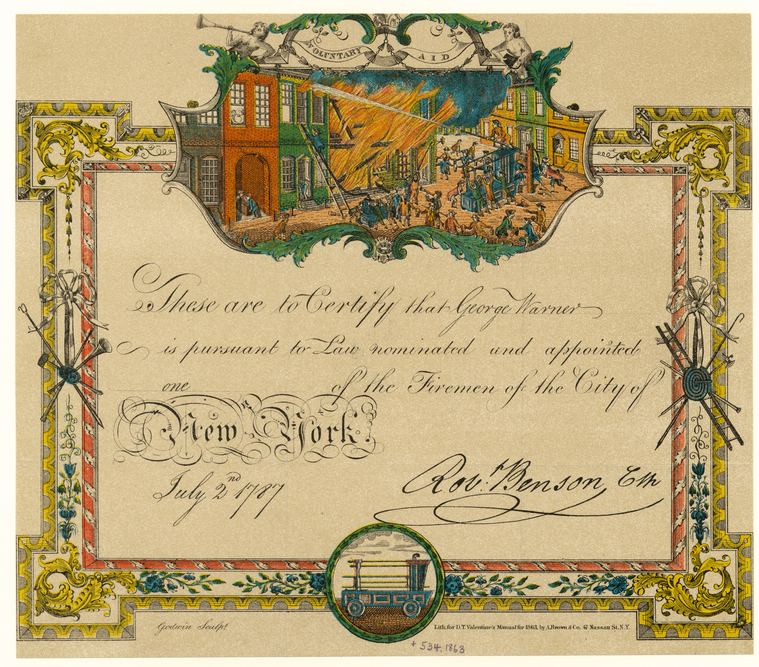 VOLUNTARY AID
These are to Certify that George Warner
is pursuant to Law nominated and appointed
one of the Firemen of the City of
New York.
July 2nd 1787
Robt. Benson, Clk
Godwin Sculpt.
Lith. for D.T. Valentine's Manual for 1863, by A. Brown & Co. 47 Nassau St. N.Y.
+ 534, 1863